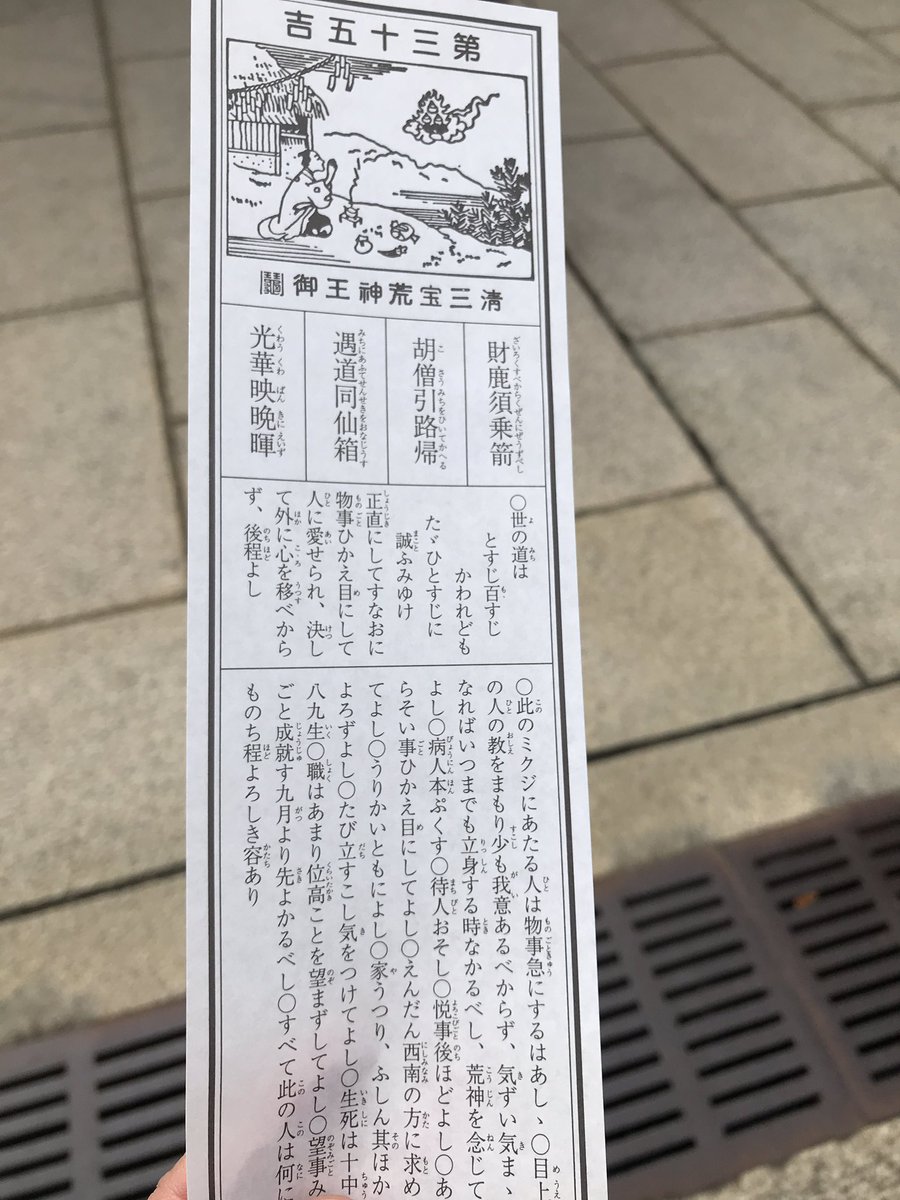 第三十五吉
清三宝荒神王御
財鹿須乗箭
胡僧引路帰
遇道同仙箱
光華映晩暉
〇世の道は
とすじ百すじ
かわれども
たゞひとすじに
誠ふみゆけ
正直にしてすなおに
物事ひかえ目にして
人に愛せられ、決し
て外に心を移べから
ず、後程よし
〇此のミクジにあたる人は物事急にするはあし、〇目上
の人の教をまもり少も我意あるべからず、気ずい気ま、
なればいつまでも立身する時なかるべし、荒神を念じて
よし〇病人本ぷくす〇待人おそし〇悦事後ほどよし〇あ
らそい事ひかえ目にしてよし〇えんだん西南の方に求め
てよし〇うりかいともによし〇家うつり、ふしん其ほか
よろずよし〇たび立すこし気をつけてよし〇生死は十中
八九生〇職はあまり位高ことを望まずしてよし〇望事み
ごと成就す九月より先よかるべし〇すべて此の人は何に
ものち程よろしき容あり